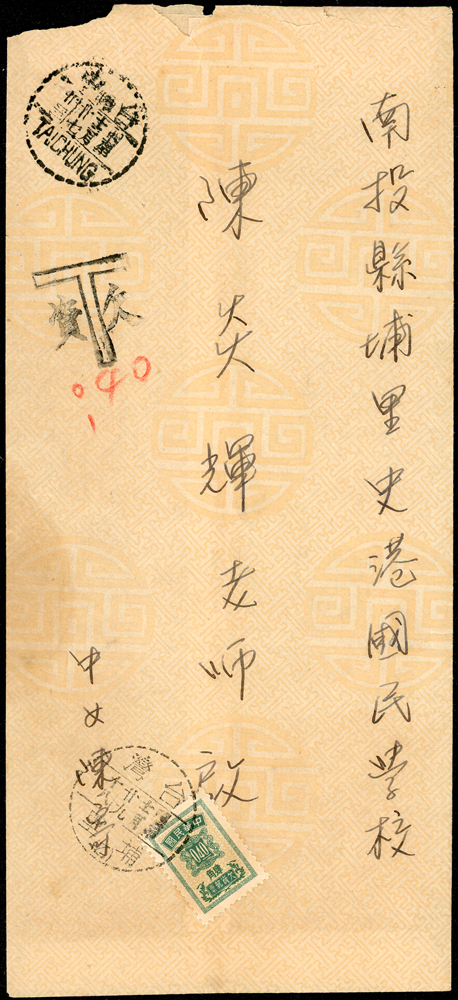 南投縣埔里史港國民學校
陳炎輝老師啟
中女陳
TAICHUNG
T
欠資
040
台灣
埔
中華民國
0.40
肆角